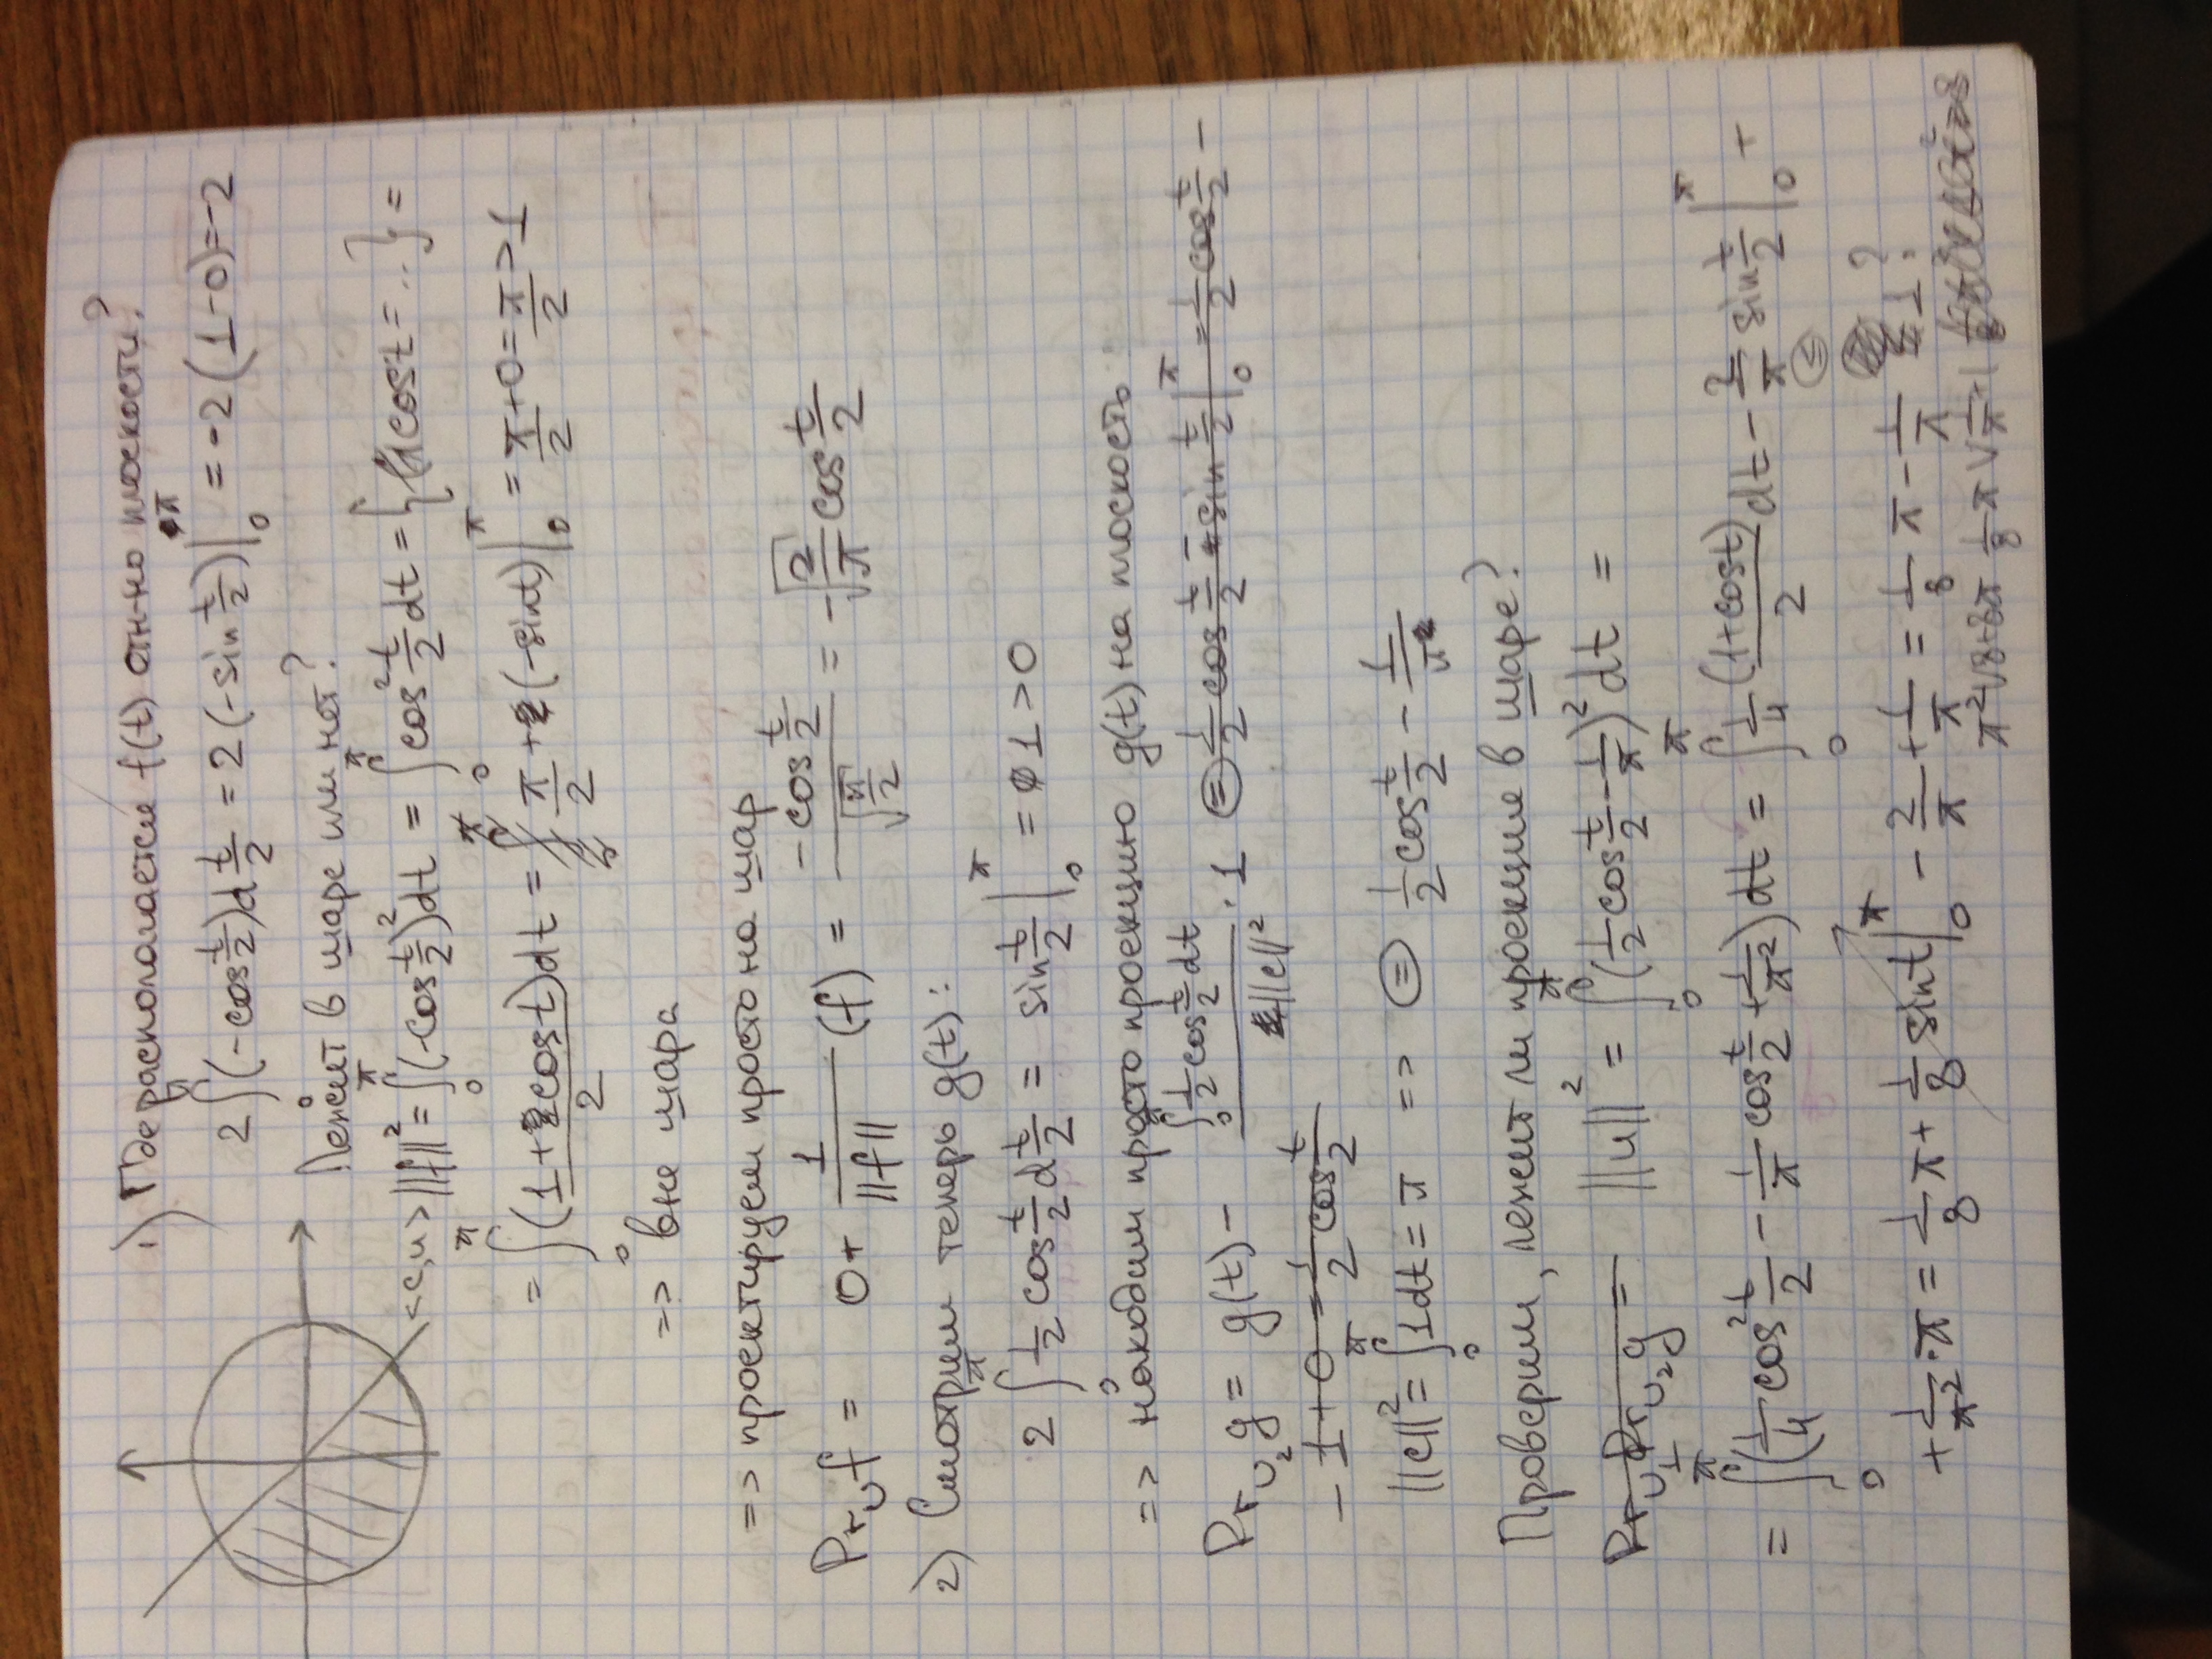 1) Где располагается f(t) отн-но плоскости?
2∫₀^π (-cos t/2) d t/2 = 2(-sin t/2)|₀^π = -2(1-0) = -2
Лежит в шаре или нет?
<c,u> ||f||² = ∫₀^π (-cos t/2)² dt = ∫₀^π cos² t/2 dt = {cost = ...} =
= ∫₀^π (1+cost)/2 dt = π/2 + (-sint)|₀^π = π/2 + 0 = π/2 > 1
=> вне шара
=> проектируем просто на шар
Pr_U f = 0 + 1/||f|| (f) = -cos t/2 / √(π/2) = -√(2/π) cos t/2
2) Смотрим теперь g(t):
2 ∫₀^π 1/2 cos t/2 d t/2 = sin t/2 |₀^π = 1 > 0
=> находим просто проекцию g(t) на плоскость:
Pr_U₂ g = g(t) - ∫₀^π 1/2 cos t/2 dt / ||c||² · 1 (=) 1/2 cos t/2 - sin t/2 |₀^π = 1/2 cos t/2 -
- 1 + 0 = 1/2 cos t/2
||c||² = ∫₀^π 1dt = π => (=) 1/2 cos t/2 - 1/π
Проверим, лежит ли проекция в шаре?
Pr_U₁ Pr_U₂ g = ||u||² = ∫₀^π (1/2 cos t/2 - 1/π)² dt =
= ∫₀^π (1/4 cos² t/2 - 1/π cos t/2 + 1/π²) dt = ∫₀^π 1/4 (1+cost)/2 dt - 2/π sin t/2 |₀^π +
+ 1/π² · π = 1/8 π + 1/8 sint |₀^π - 2/π + 1/π = 1/8 π - 1/π 1?
π² V 8+8π 1/8 π V 1/π + 1